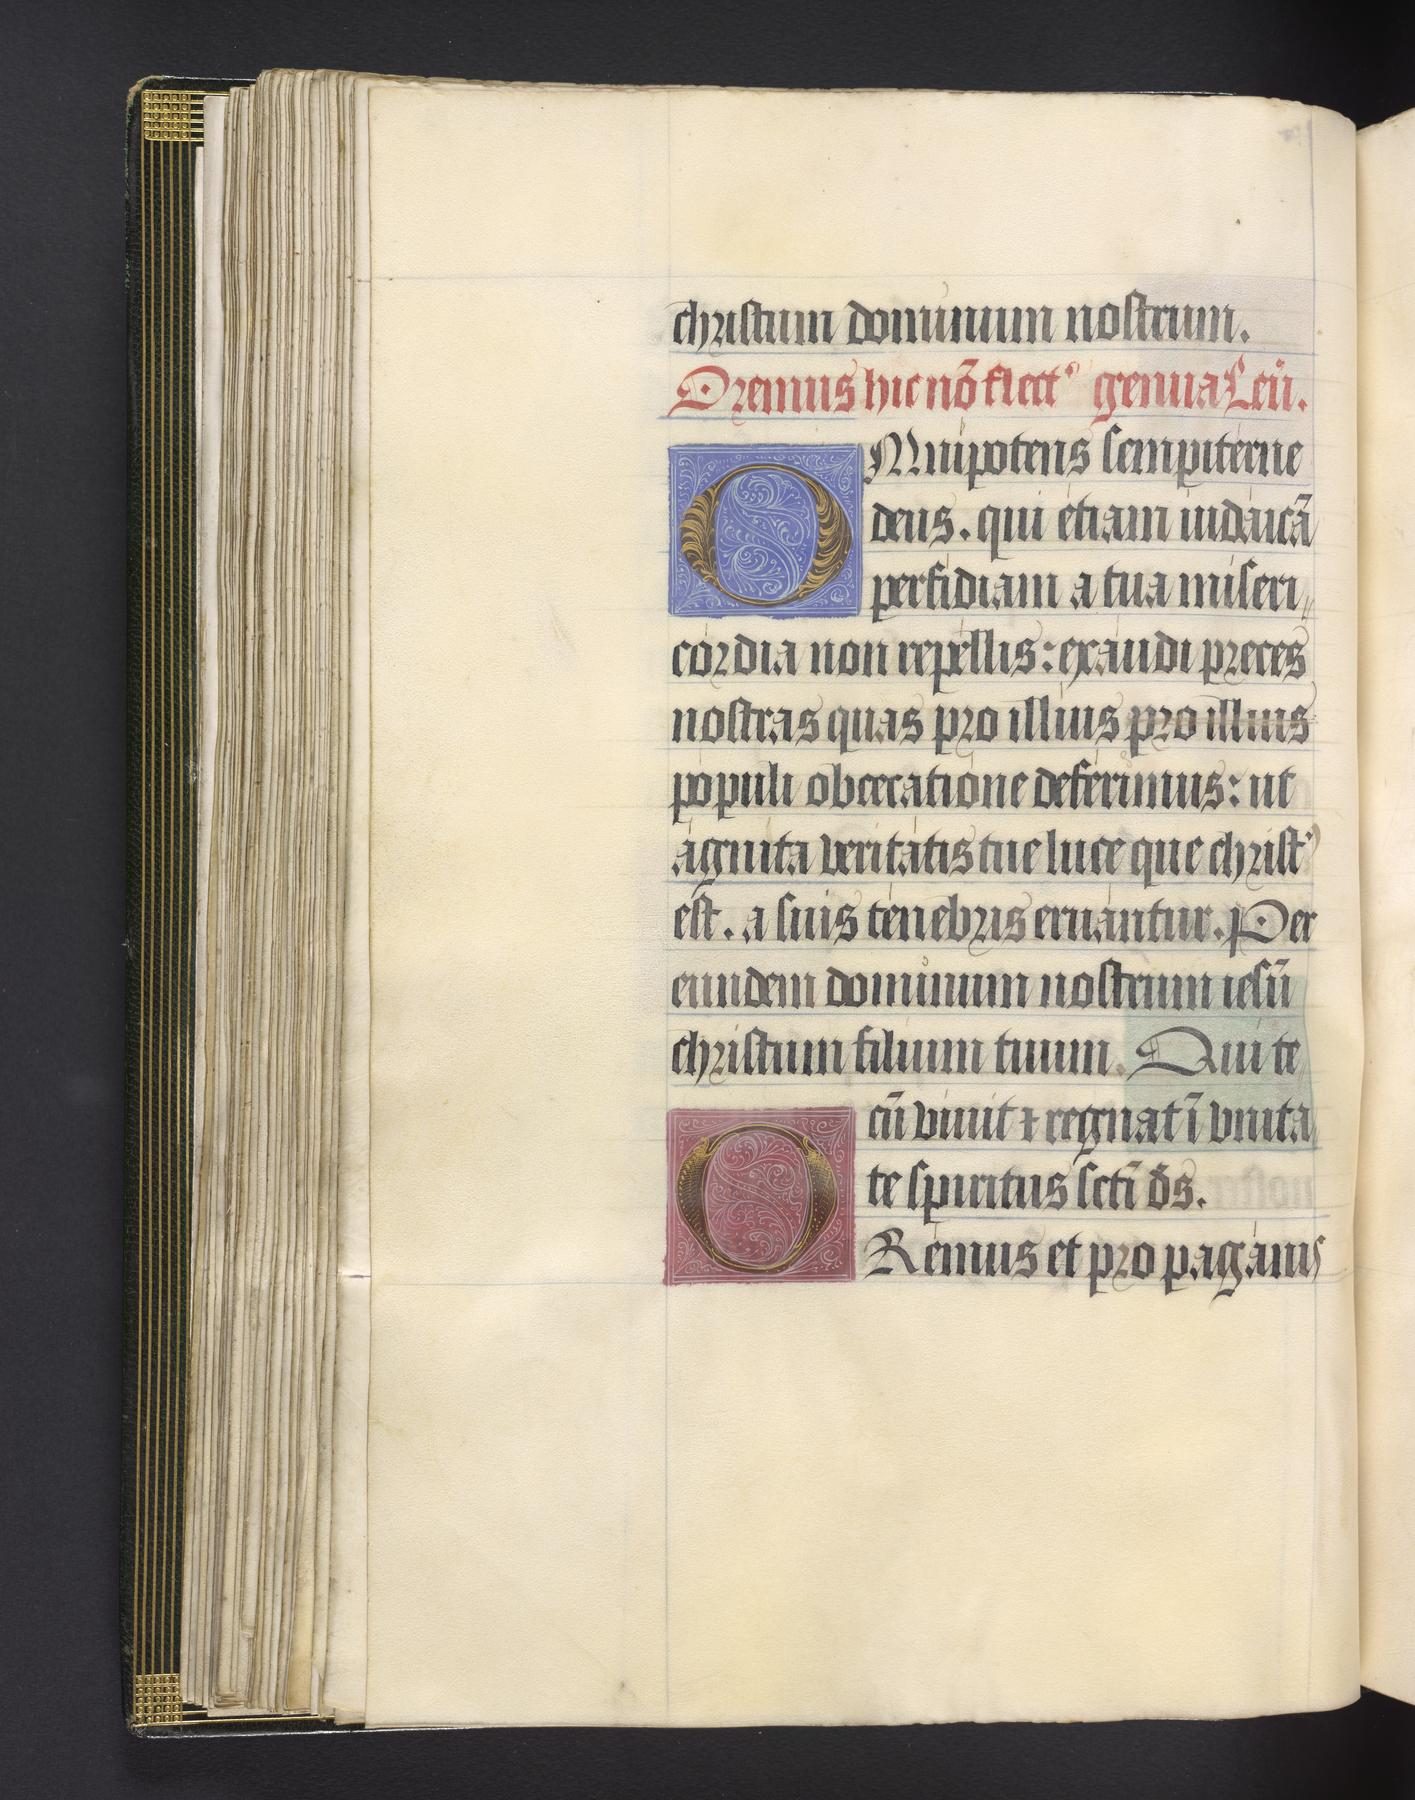 christum dominum nostrum.
Oremus hic nō flectꝰ genua Leū.
OMnipotens sempiterne
deus. qui etiam iudaicā
perfidiam a tua miseri⸗
cordia non repellis: exaudi preces
nostras quas pro illius pro illius
populi obcecatione deferimus: ut
agnita veritatis tue luce que christꝰ
est. a suis tenebris eruantur. Per
eundem dominum nostrum iesū
christum filium tuum. Qui te
cū viuit ⁊ regnat ī vnita
te spiritus sctī d̄s.
ORemus et pro paganis